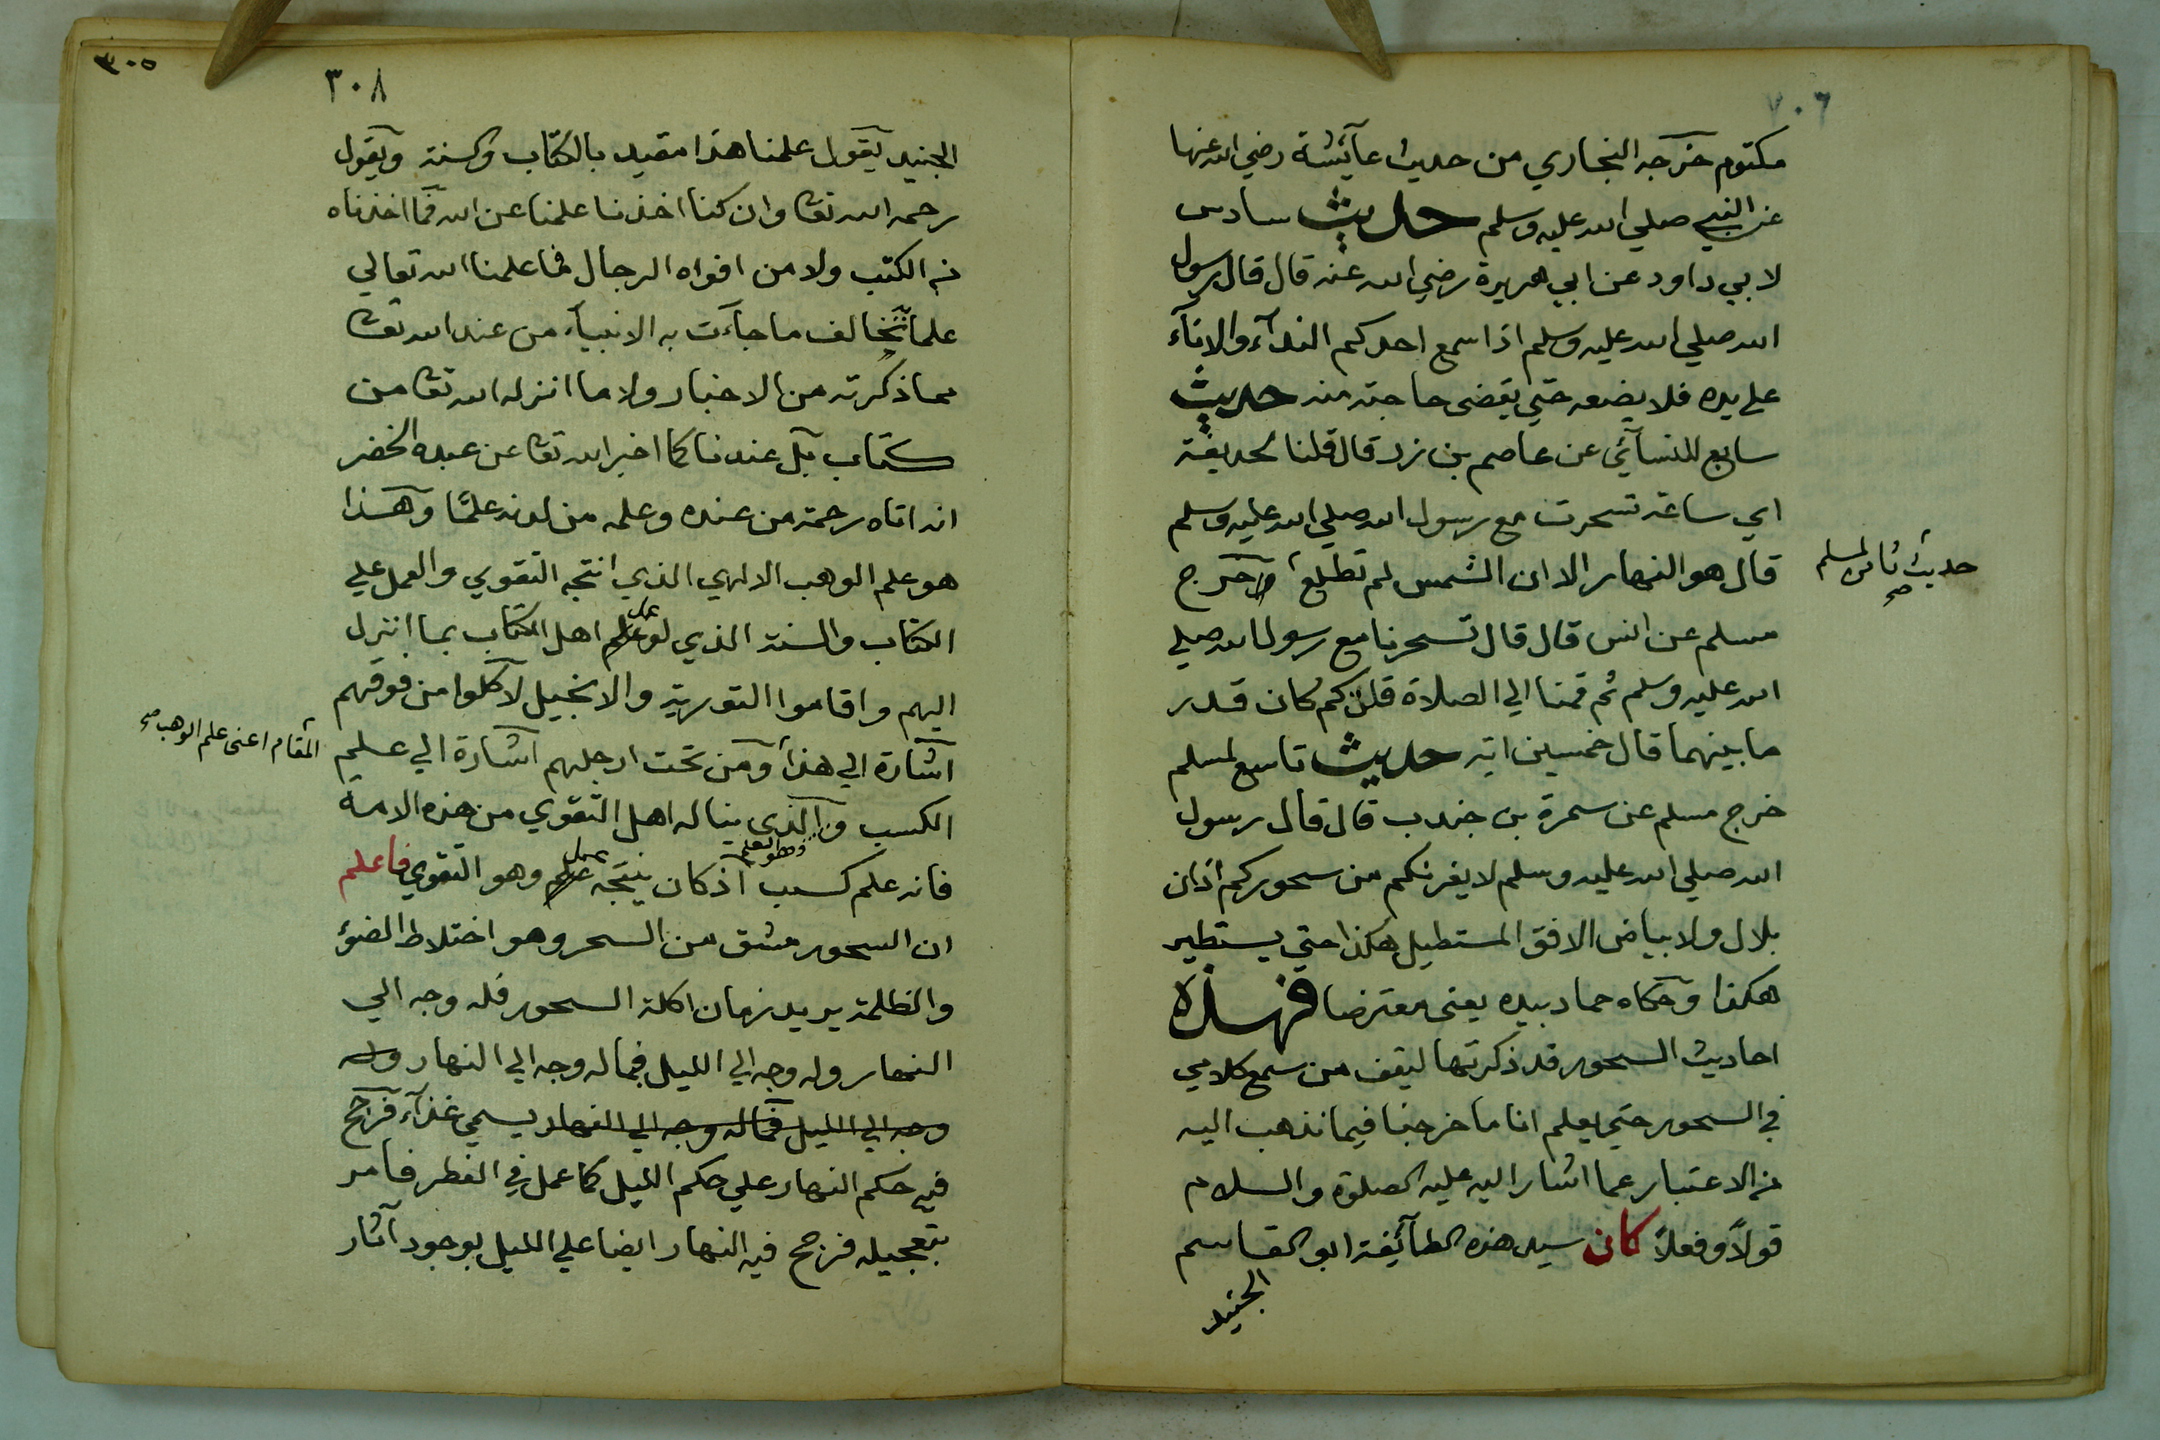 ٧٠٦
مكتوم خرجه البخاري من حديث عآئشة رضي الله عنها
عن النبي صلي الله عليه وسلم حديث سادس
لابي داود عن ابي هريرة رضي الله عنه قال قال رسول
الله صلي الله عليه وسلم اذا سمع احدكم الندآء والانآء
علي يده فلا يضعه حتي يقضى حاجته منه حديث
سابع للنسآئي عن عاصم بن زر قال قلنا لحذيفة
اي ساعة تسحرت مع رسول الله صلي الله عليه وسلم
قال هو النهار الا ان الشمس لم تطلع وآخرج
حديث ثامن لمسلم صح
مسلم عن انس قال قال تسحرنا مع رسول الله صلي
الله عليه وسلم ثم قمنا الي الصلاة قلت كم كان قدر
ما بينهما قال خمسين اية حديث تاسع لمسلم
خرج مسلم عن سمرة بن جندب قال قال رسول
الله صلي الله عليه وسلم لا يغرنكم من سحوركم اذان
بلال ولا بياض الافق المستطيل هكذا حتي يستطير
هكذا وحكاه حماد بيده يعني معترضا فهذه
احاديث السحور قد ذكرتها ليقف من سمع كلامي
في السحور حتي يعلم انا ما خرجنا فيما نذهب اليه
من الاعتبار عما اشار اليه عليه الصلوة والسلام
قولاً وفعلاً كان سيد هذه الطآئفة ابو القاسم
الجنيد
٣٠٥
٣٠٨
الجنيد يقول علمنا هذا مقيد بالكتاب والسنة ويقول
رحمه الله تعا وان كنا اخذنا علمنا عن الله فما اخذناه
من الكتب ولا من افواه الرجال فما علمنا الله تعالي
علما نخالف ما جآءت به الانبيآء من عند الله تعا
مما ذكرته من الاخبار ولا ما انزله الله تعا من
كتاب بل عندنا كما اخبر الله تعا عن عبده الخضر
انه اتاه رحمة من عنده وعلمه من لدنه علمًا وهذا
هو علم الوهب الالهي الذي انتجه التقوي والعمل علي
الكتاب والسنة الذي لو عمل اهل الكتاب بما انزل
اليهم واقاموا التورية والانجيل لاكلوا من فوقهم
اشارة الي هذا ومن تحت ارجلهم اشارة الي علم
المقام اعنى علم الوهب صح
الكسب والذي يناله اهل التقوي من هذه الامة
وهو العلم
فانه علم كسب اذ كان ينتجه عمل وهو التقوي فاعلم
ان السحور مشق من السحر وهو اختلاط الضوء
والظلمة يريد زمان اكلة السحور فله وجه الي
النهار وله وجه الي الليل فبماله وجه الي النهار وله
وجه الي الليل فماله وجه الي النهار يسمي غذآء فرجح
فيه حكم النهار علي حكم الليل كما عمل في الفطر فامر
بتعجيله فرجح فيه النهار ايضا علي الليل بوجود آثار